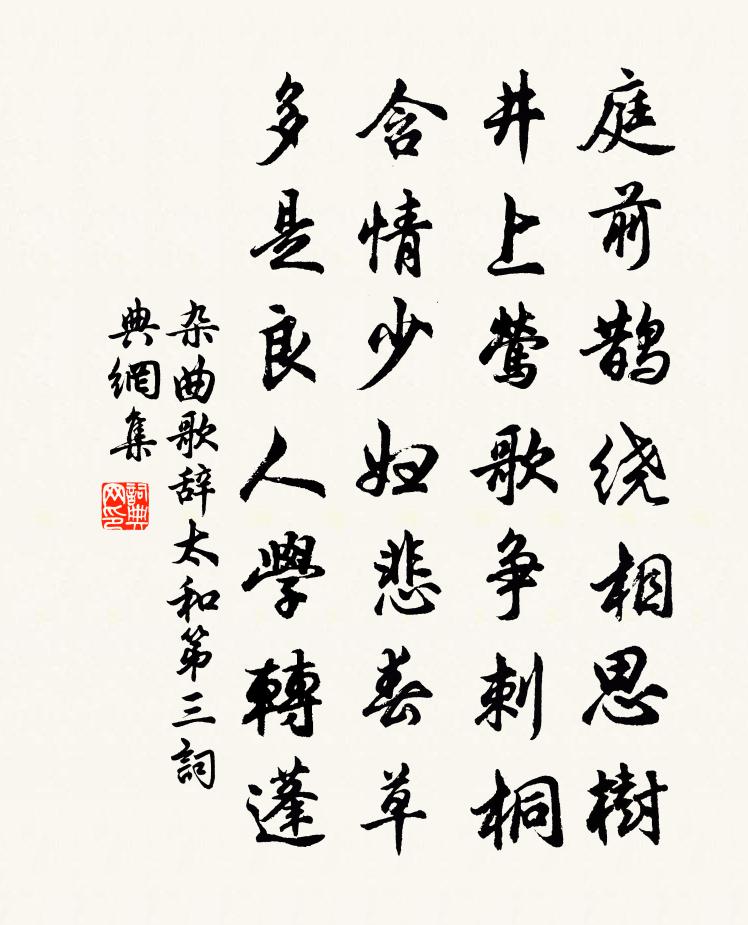 庭前鹊绕相思樹
井上莺歌争刺桐
含情少妇悲春草
多是良人學轉蓬
杂曲歌辞太和第三詞
典網集
詞典网印